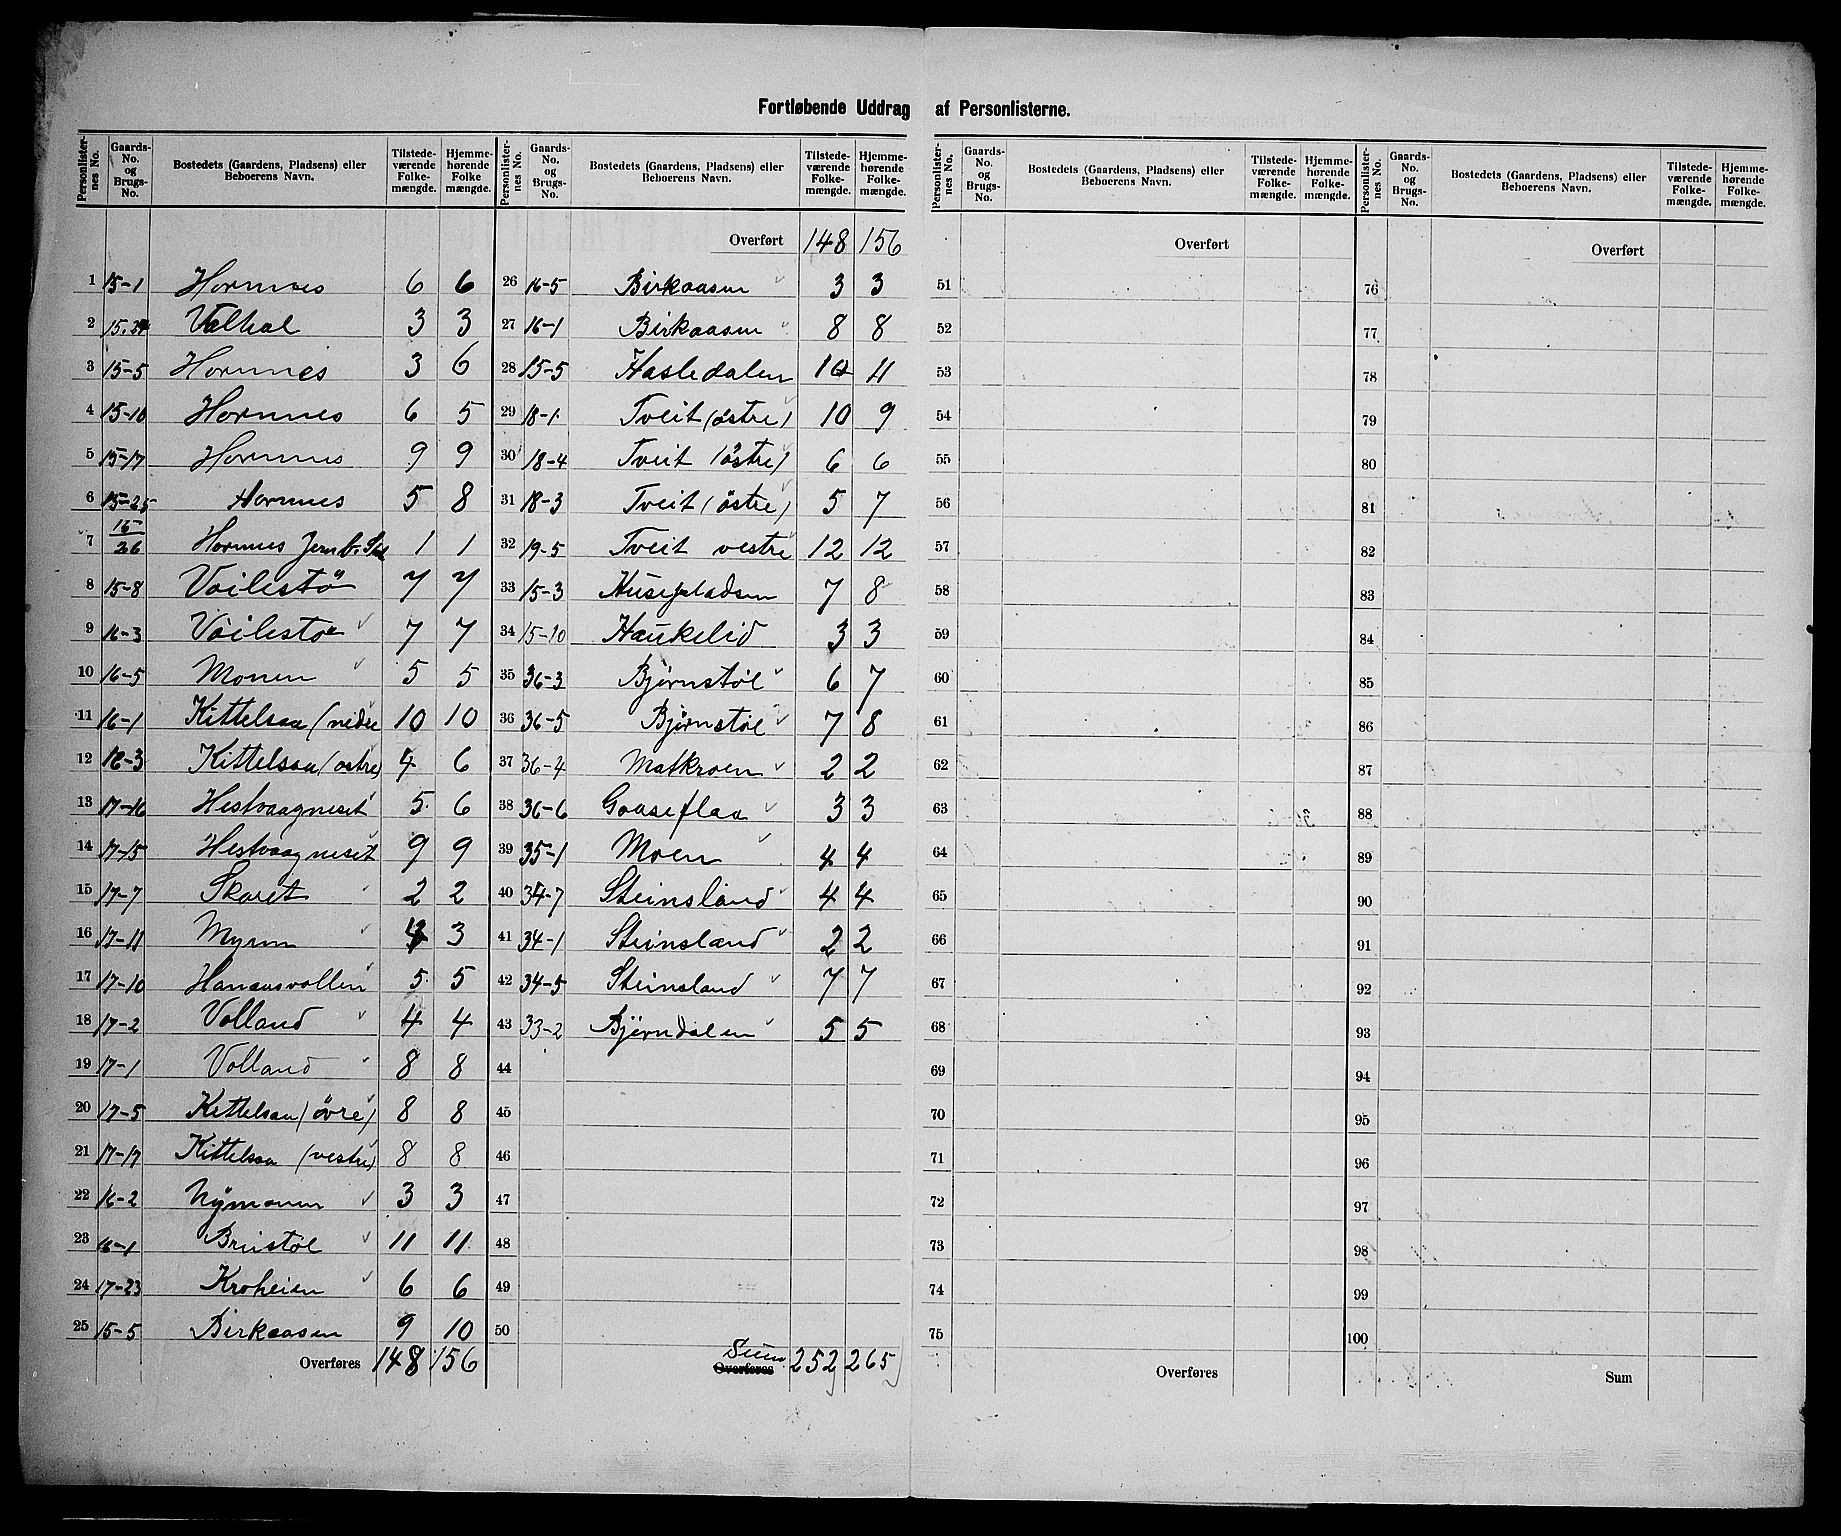 Fortløbende Uddrag af Personlisterne.
Personlister-nes No. Gaards-No. og Brugs-No. Bostedets (Gaardens, Pladsens) eller Beboerens Navn. Tilstede-værende Folke-mængde. Hjemme-hørende Folke mængde.
1 15-1 Hornnes 6 6
2 15.24 Valhal 3 3
3 15-5 Hornnes 3 6
4 15-10 Hornnes 6 5
5 15-17 Hornnes 9 9
6 15-25 Hornnes 5 8
7 15/26 Hornnes Jernb. St. 1 1
8 15-8 Voilestö 7 7
9 16-3 Voilestöe 7 7
10 16-5 Monen 5 5
11 16-1 Kittelsaa (nedre 10 10
12 16-3 Kittelsaa (østre) 4 6
13 17-16 Hestvaagneset 5 6
14 17-15 Hestvaagneset 9 9
15 17-7 Skaret 2 2
16 17-11 Myren 4 3
17 17-10 Hanaasvollen 5 5
18 17-2 Volland 4 4
19 17-1 Volland 8 8
20 17-5 Kittelsaa (övre) 8 8
21 17-17 Kittelsaa (vestre) 8 8
22 16-2 Nymonen 3 3
23 16-1 Brustøl 11 11
24 17-23 Kroheien 6 6
25 15-5 Birkaasen 9 10
Overføres 148 156
Personlister-nes No. Gaards-No. og Brugs-No. Bostedets (Gaardens, Pladsens) eller Beboerens Navn. Tilstede-værende Folke-mængde. Hjemme-hørende Folke-mængde.
Overført 148 156
26 16-5 Birkaasen 3 3
27 16-1 Birkaasen 8 8
28 15-5 Hasledalen 10 11
29 18-1 Tveit (östre) 10 9
30 18-4 Tveit (östre) 6 6
31 18-3 Tveit (östre) 5 7
32 19-5 Tveit vestre 12 12
33 15-3 Husepladsen 7 8
34 15-10 Haukelid 3 3
35 36-3 Bjørnstøl 6 7
36 36-5 Bjørnstøl 7 8
37 36-4 Matkroen 2 2
38 36-6 Gaaseflaa 3 3
39 35-1 Moen 4 4
40 34-7 Steinsland 4 4
41 34-1 Steinsland 2 2
42 34-5 Steinsland 7 7
43 33-2 Bjørndalen 5 5
44
45
46
47
48
49
50
Sum Overføres 252 265
Personlister-nes No. Gaards-No. og Brugs-No. Bostedets (Gaardens, Pladsens) eller Beboerens Navn. Tilstede-værende Folke-mængde. Hjemme-hørende Folke-mængde.
Overført
51
52
53
54
55
56
57
58
59
60
61
62
63
64
65
66
67
68
69
70
71
72
73
74
75
Overføres
Personlister-nes No. Gaards-No. og Brugs-No. Bostedets (Gaardens, Pladsens) eller Beboerens Navn. Tilstede-værende Folke-mængde. Hjemme-hørende Folke-mængde.
Overført
76
77
78
79
80
81
82
83
84
85
86
87
88
89
90
91
92
93
94
95
96
97
98
99
100
Sum